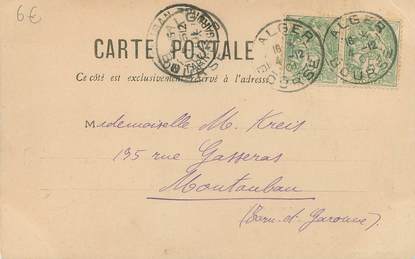 6€
CARTE POSTALE
Ce côté est exclusivement réservé à l'adresse
ALGER
BOURSE
ALGER
BOURSE
Mademoiselle M. Kreis
135 rue Gasseras
Montauban
(Tarn-et-Garonne).